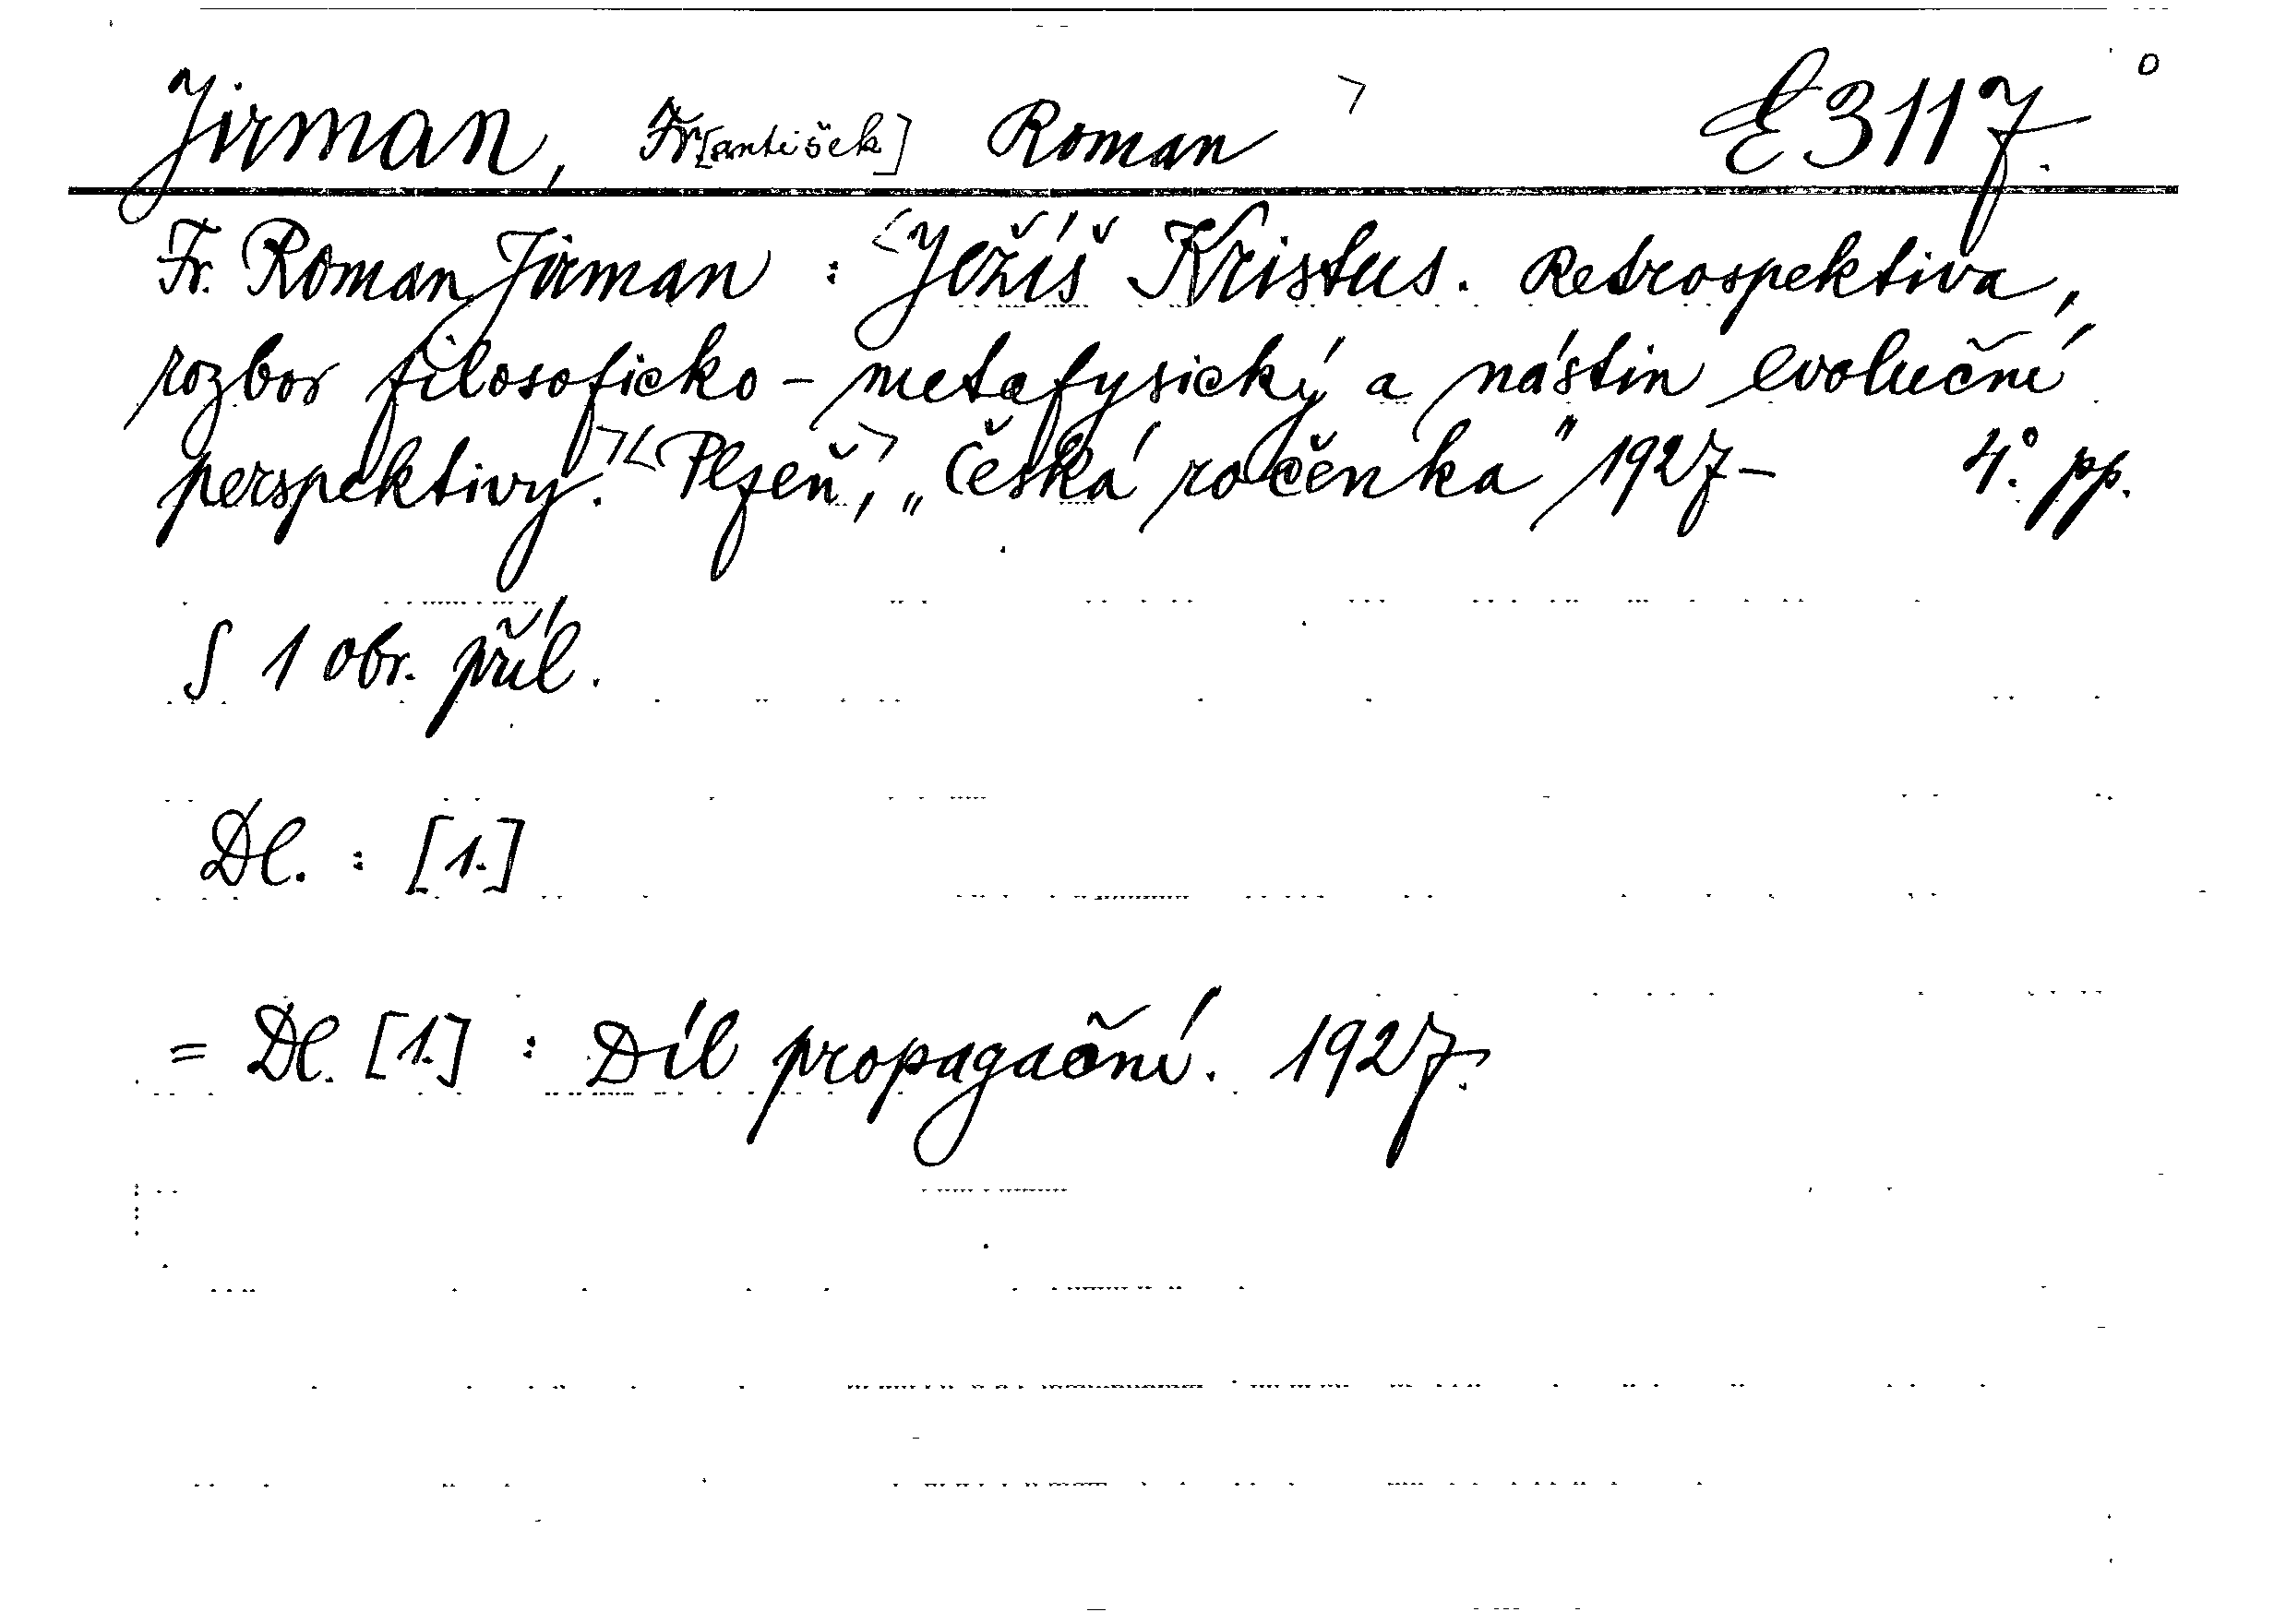 Jirman, Fr[antišek] Roman > E 3117. o
Fr. Roman Jirman : <Ježíš Kristus. Retrospektiva,
rozbor filosoficko-metafysický a nástin evoluční
perspektivy.> <Plzeň,> „Česká ročenka" 1927- 4°. pp.
S 1 obr. příl.
Dl. : [1.]
= Dl. [1.] : Díl propagační. 1927.